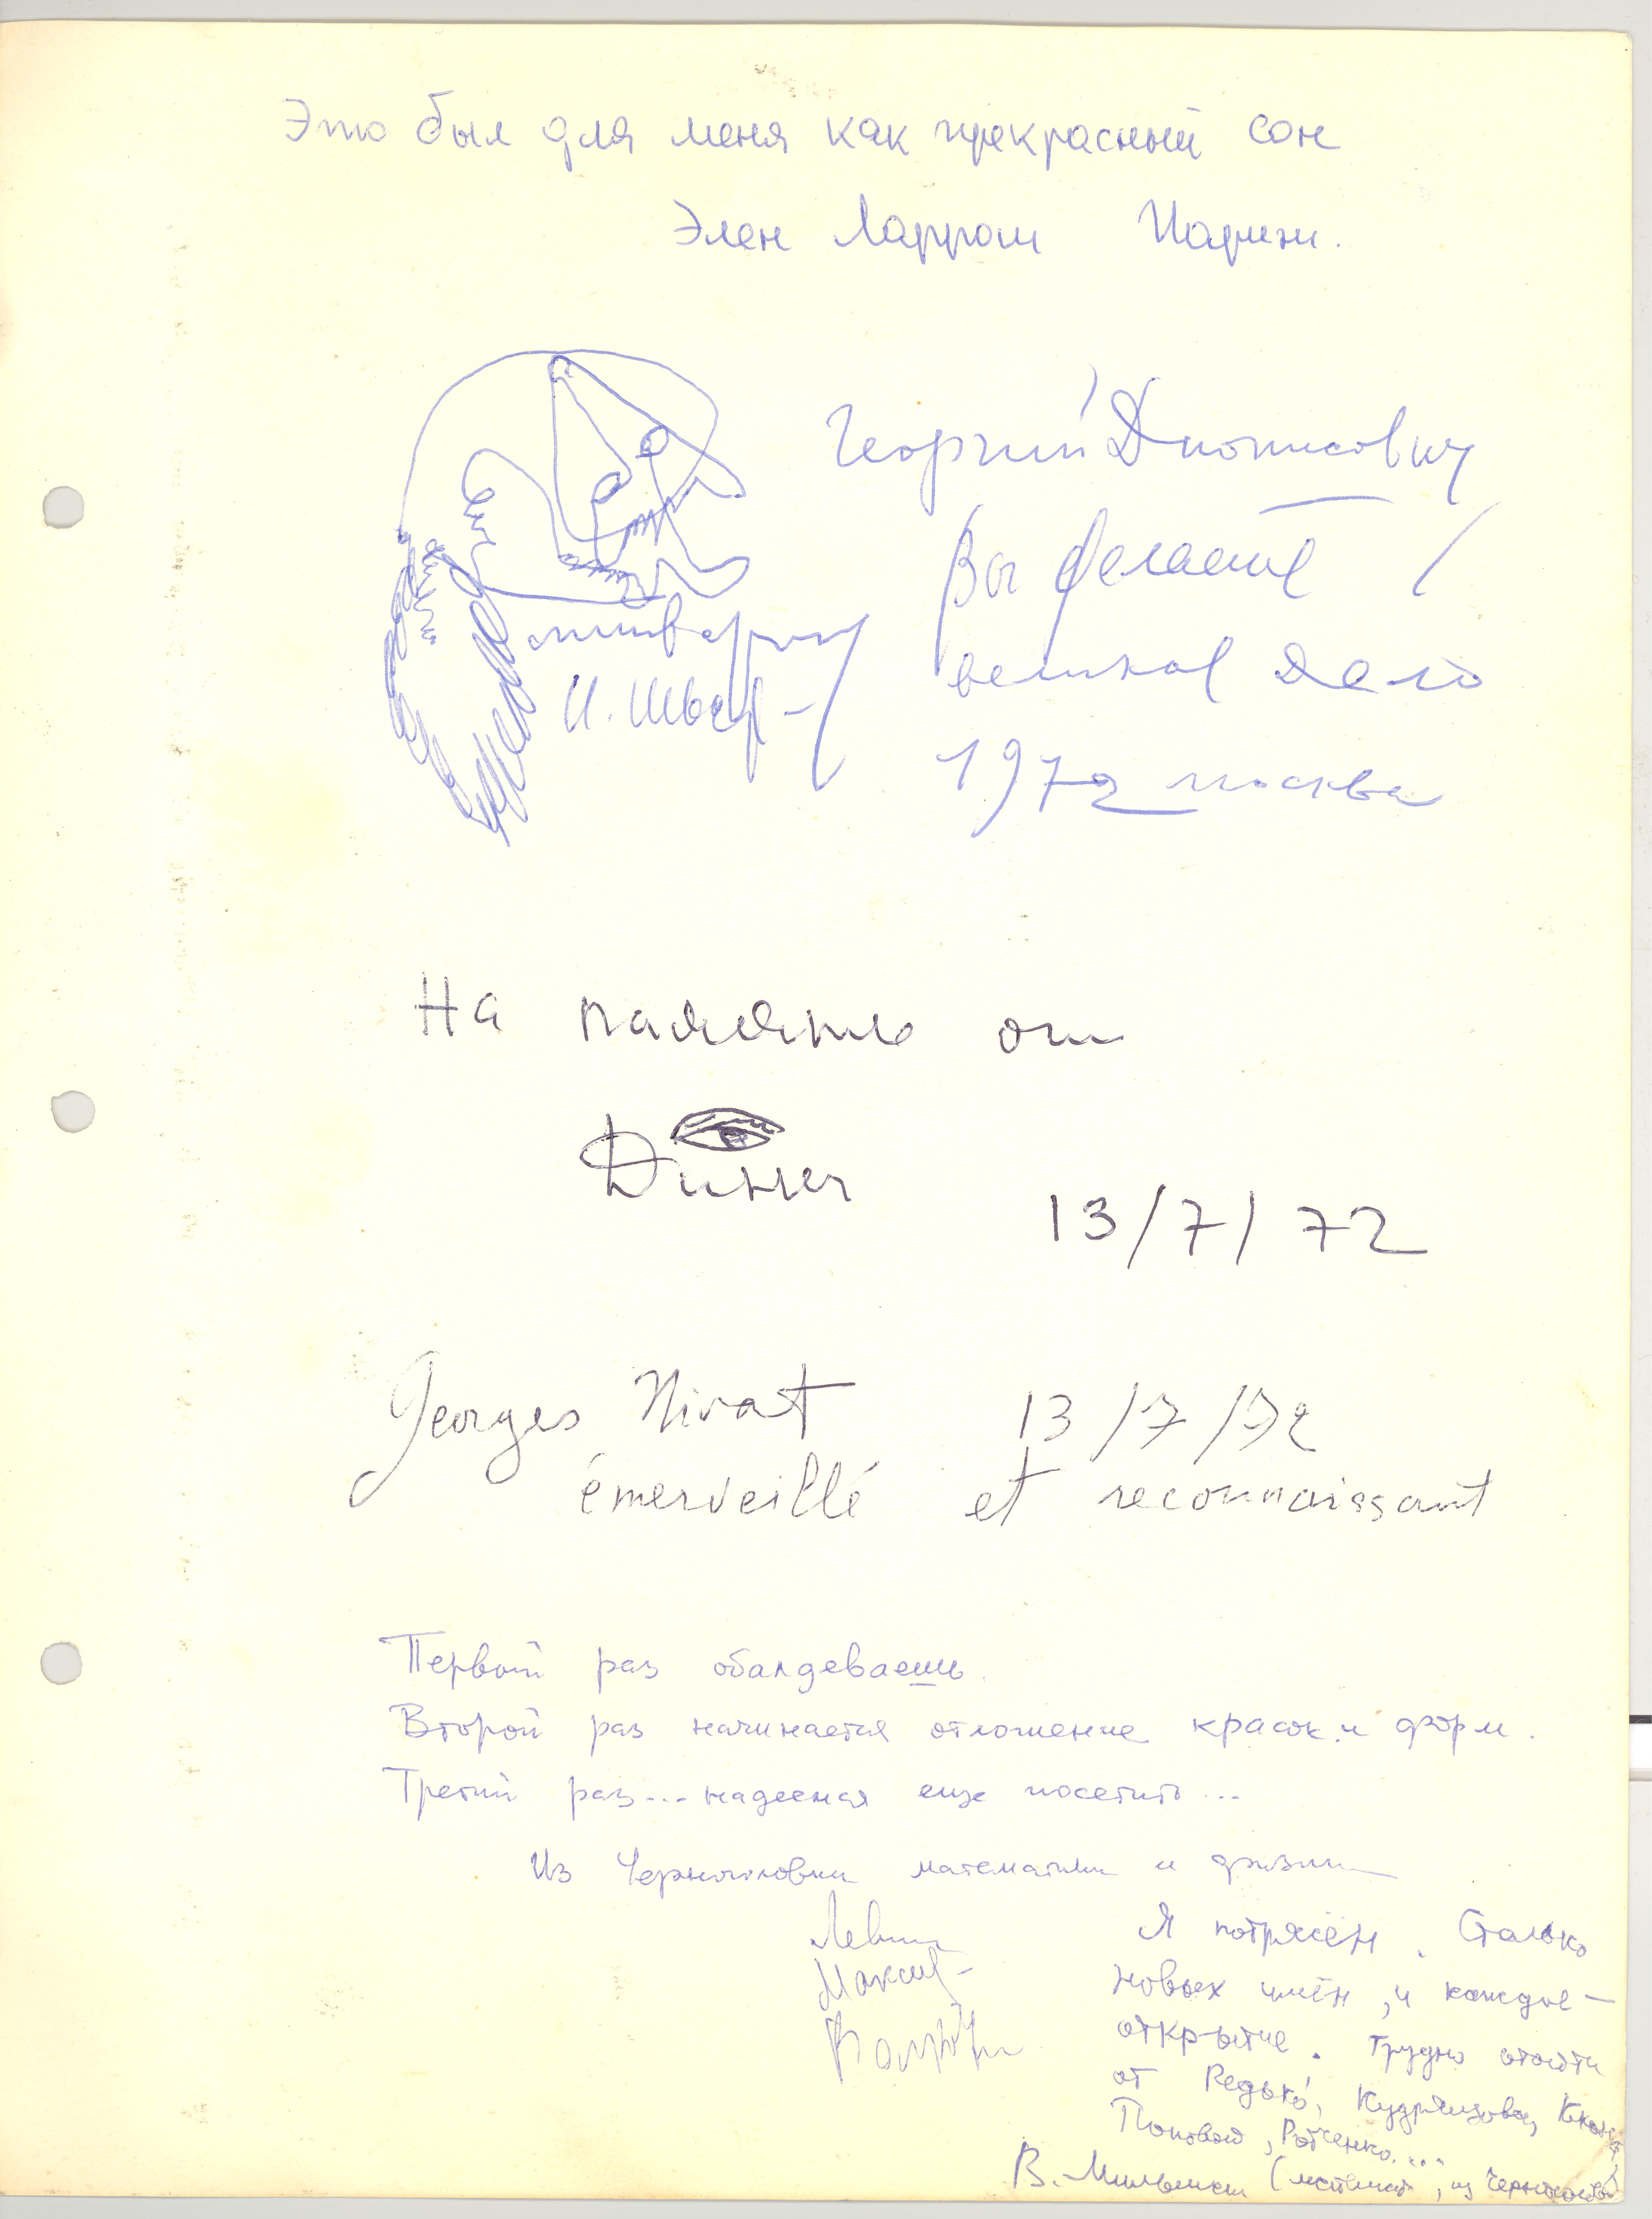 Это был для меня как прекрасный сон
Элен Ларрош Париж.
Георгий Дионисович
Вы делаете
великое дело
1972 москва
На память от
Дины
13/7/72
Georges Nivat 13/7/72
émerveillé et reconnaissant
Первый раз обалдеваешь.
Второй раз начинается отложение красок и форм.
Третий раз... надеемся еще посетить...
Из Черноголовки математики и физики
Левин
Я потрясён. Столько
новых имён, и каждое –
открытие. Трудно отойти
от Редько, Кудряшова, Клюна,
Поповой, Родченко...
В. (математик, из Черноголовки)